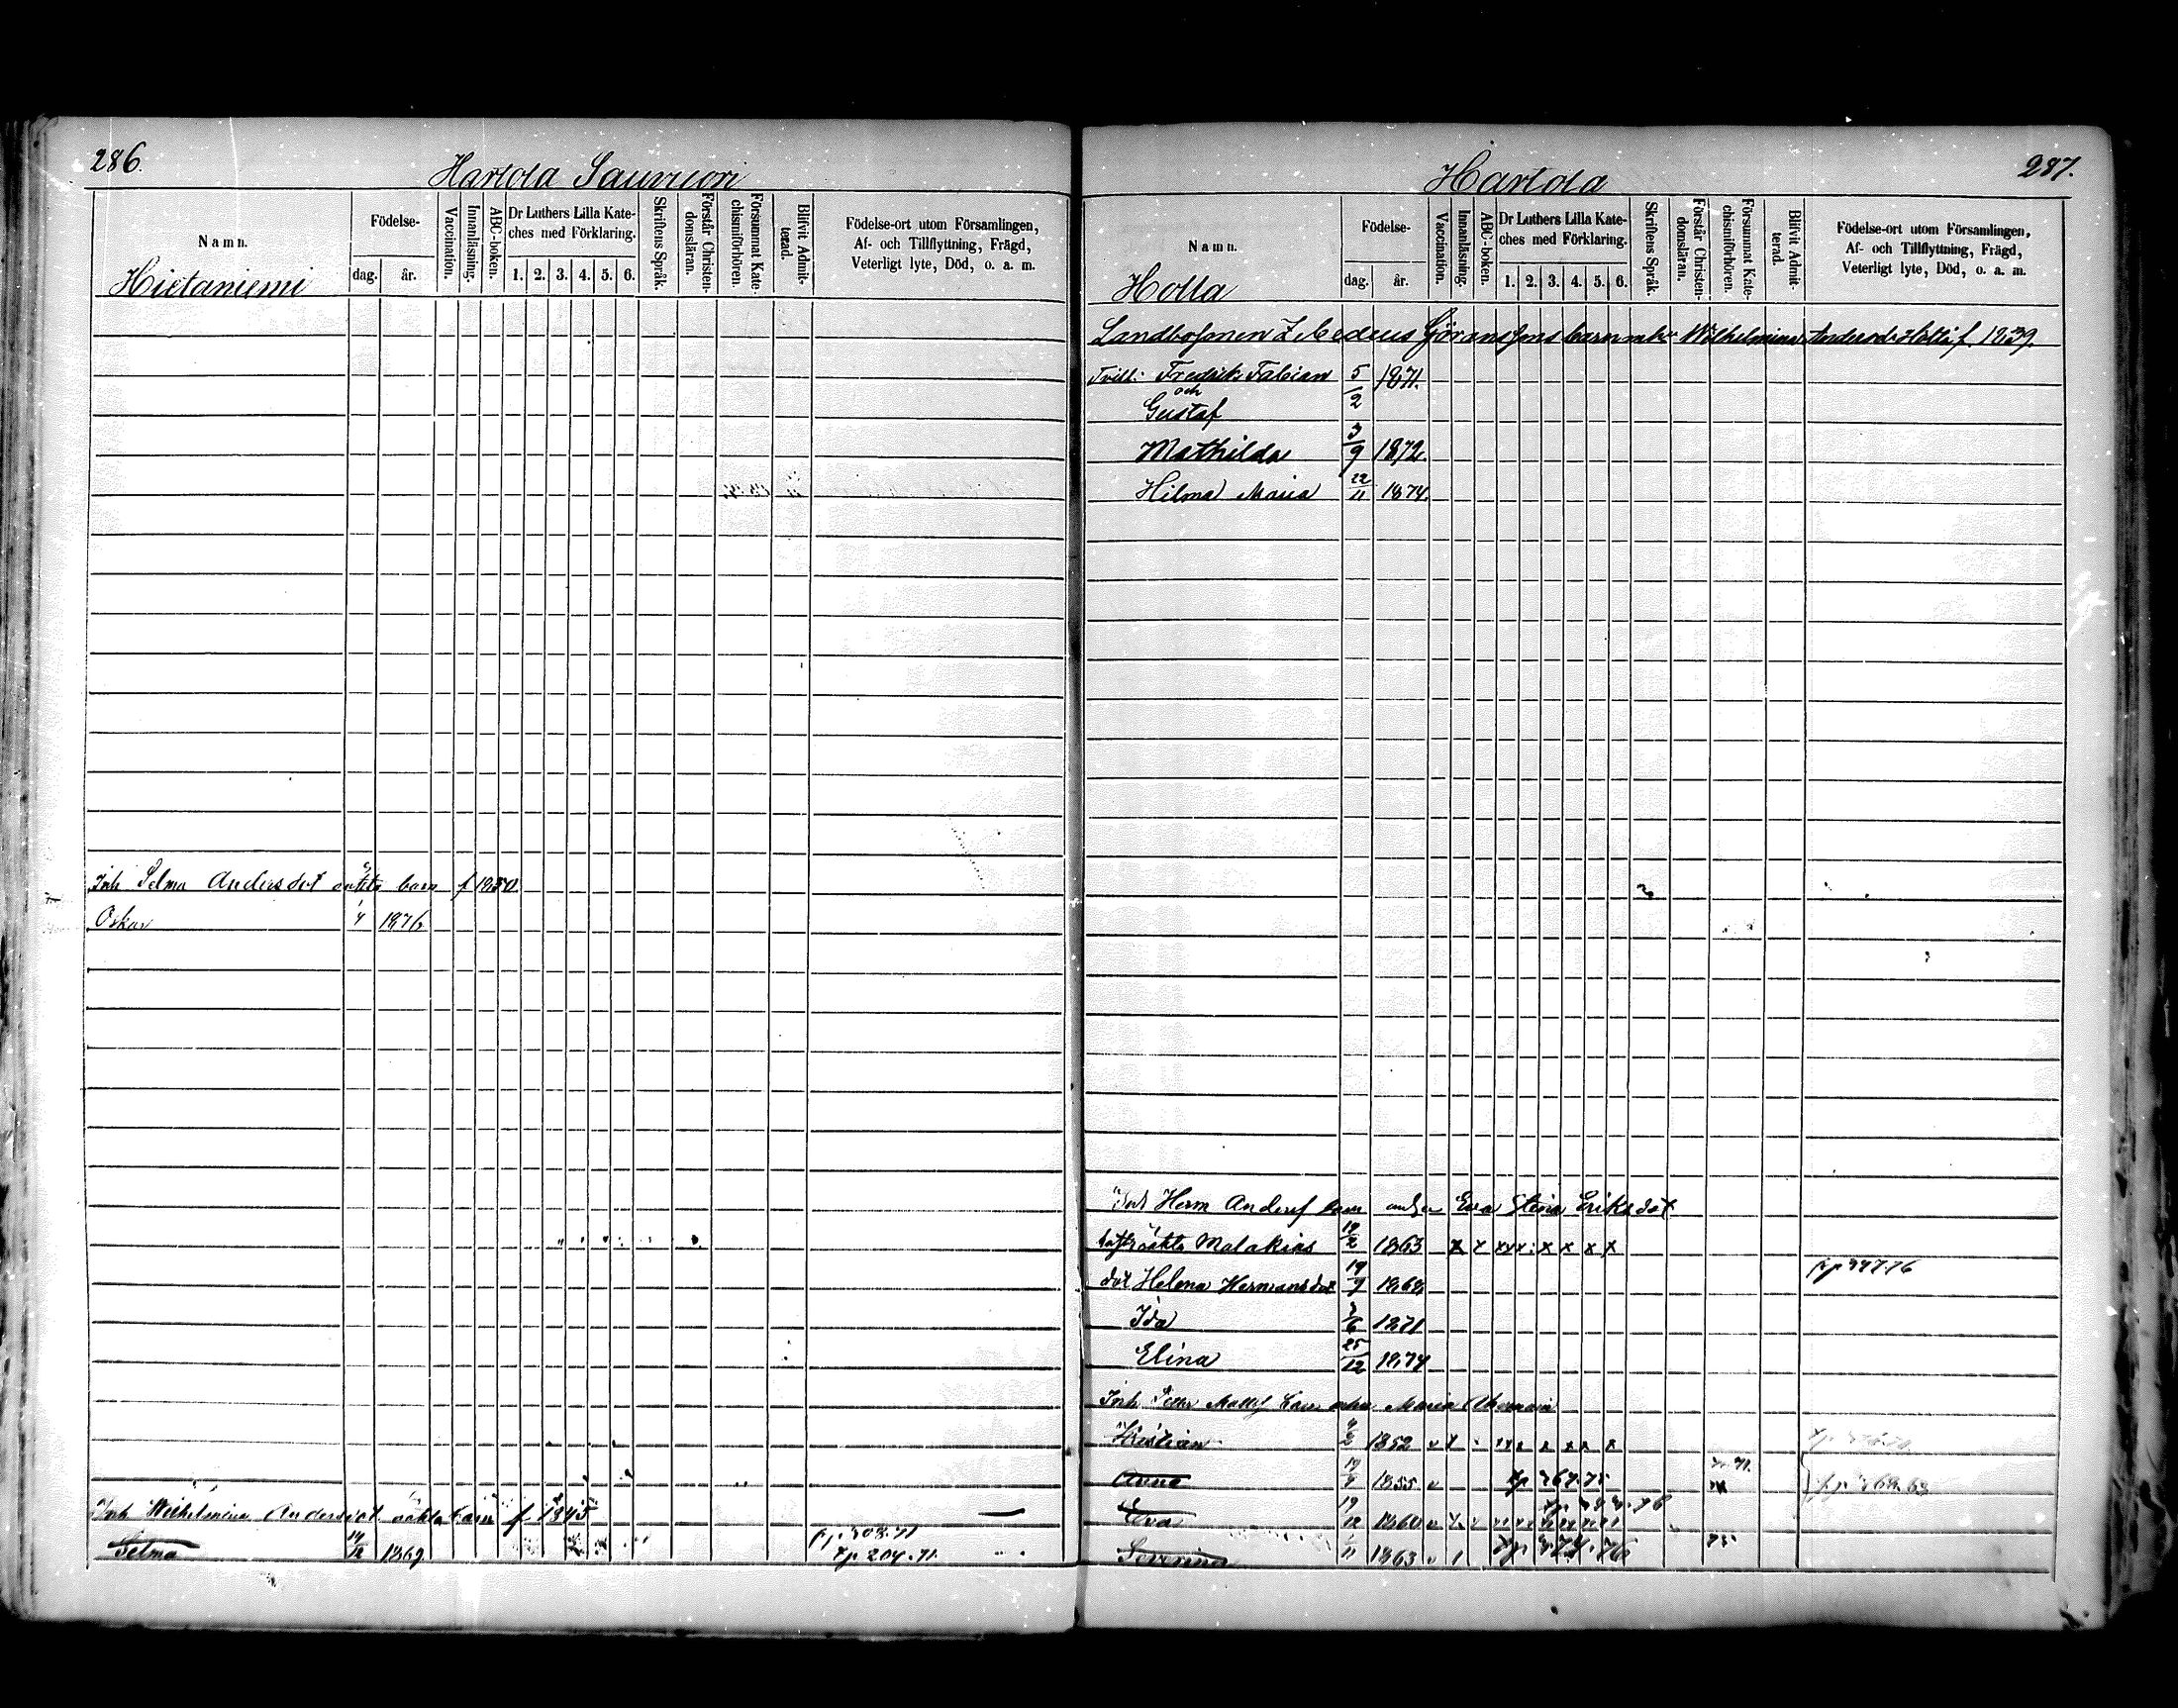 286.
Hartola Sauvuori
Namn.
Födelse-
dag. år.
Vaccination.
Innanläsning.
ABC-boken.
Dr Luthers Lilla Kate-
ches med Förklaring.
1. 2. 3. 4. 5. 6.
Skriftens Språk.
Förstår Christen-
domsläran.
Försummat Kate-
chismiförhören.
Blifvit Admit-
terad.
Födelse-ort utom Församlingen,
Af- och Tillflyttning, Frägd,
Veterligt lyte, Död, o. a. m.
Hietaniemi
Inh Selma Andersdot oäkta barn f 1850
Oskar 4 1876
Inh Wilhelmina Andersdot oäkta barn f 1845
Selma 14/12 1869 fp 308.71
tp 204.71.
287.
Hartola
Namn.
Födelse-
dag. år.
Vaccination.
Innanläsning.
ABC-boken.
Dr Luthers Lilla Kate-
ches med Förklaring.
1. 2. 3. 4. 5. 6.
Skriftens Språk.
Förstår Christen-
domsläran.
Försummat Kate-
chismiförhören.
Blifvit Admit-
terad.
Födelse-ort utom Församlingen,
Af- och Tillflyttning, Frägd,
Veterligt lyte, Död, o. a. m.
Holla
Landbofmen Zebedeus Göransfons barn m hu Wilhelmina Andersd. Holla f. 1839.
Tvill: Fredrik Fabian 5/2 1871.
och
Gustaf
Mathilda 3/9 1872.
Hilma Maria 22/11 1874
Herm Andersf barn Eva Stina Eriksdot
oäkta Malakias 19/2 1863 x x xxx x x x x
dot Helena Hermansdot 19/9 1868 fp 347.76
Ida 3/6 1871
Elina 25/12 1874
Inh Petter Mattsf barn Maria
Kristian 2 1852
Anna 19/9 1855 tp 267.75 fp 268.68
Eva 19/12 1860
Severina 1/11 1863 tp 274.76 75